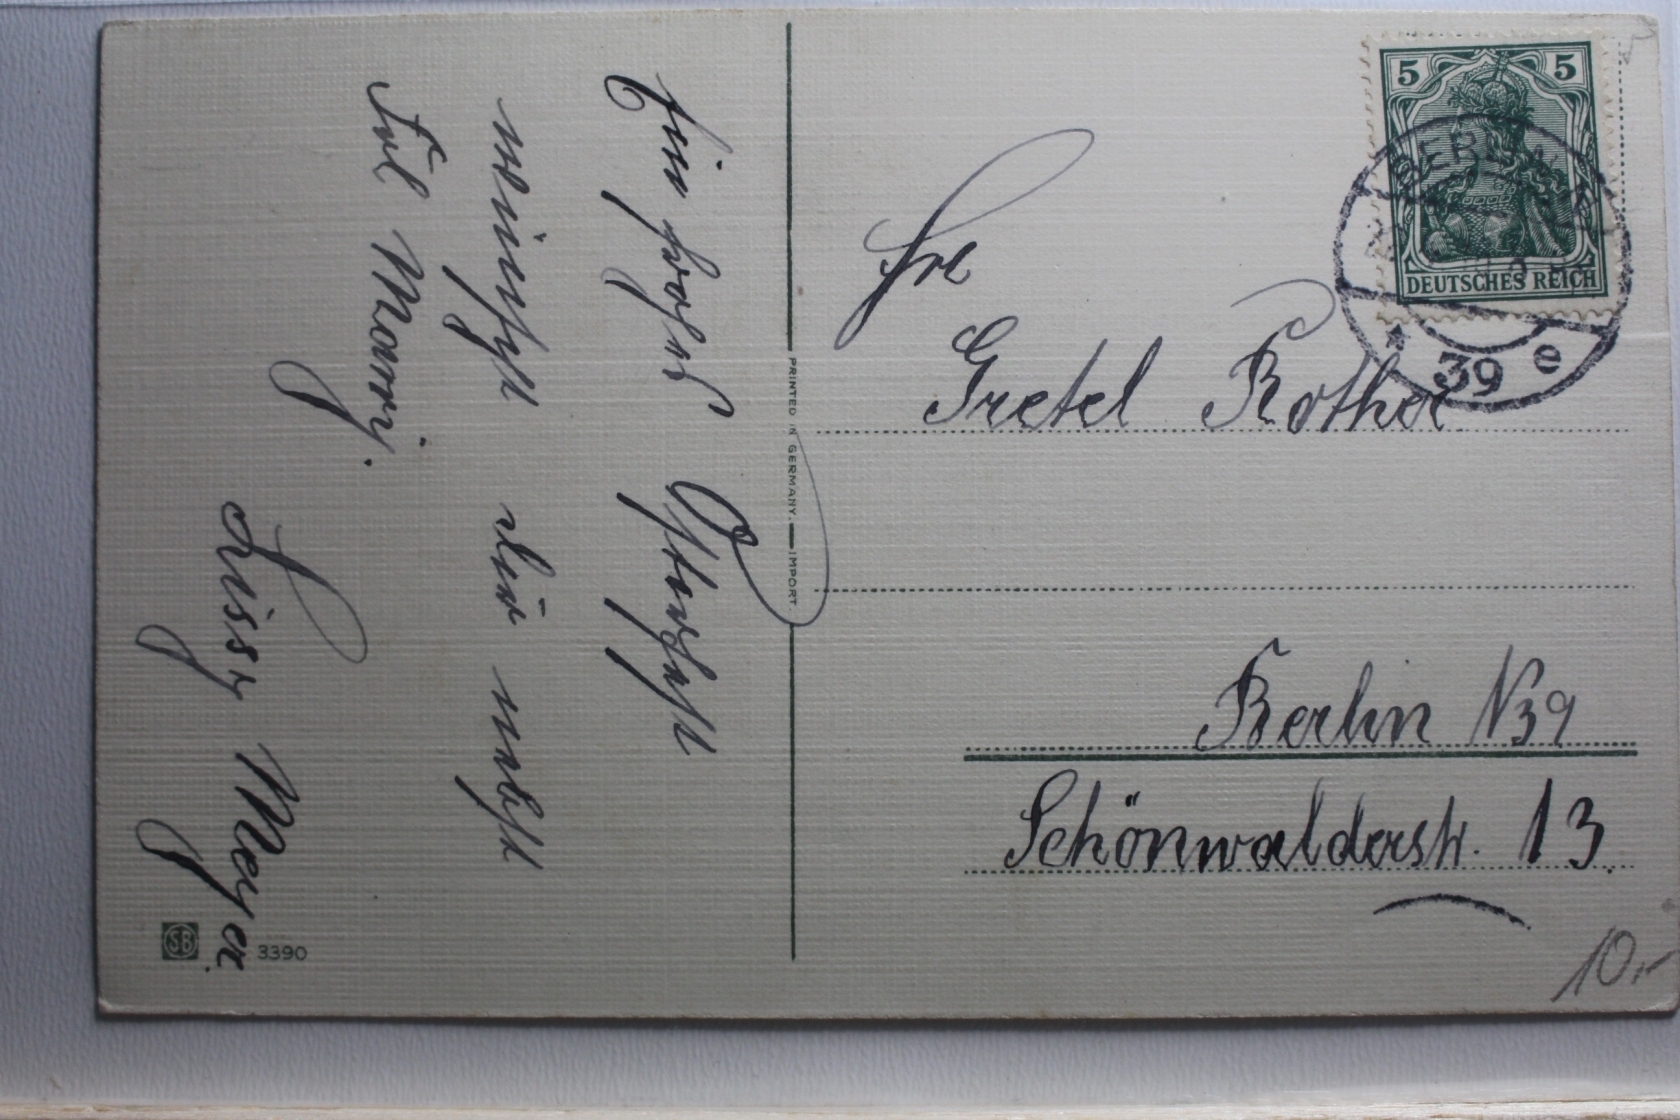 Ein frohes Osterfest
wünscht dir nebst
Frl Marny.
Lissy Meyer.
SB 3390
PRINTED IN GERMANY. IMPORT
5 5
DEUTSCHES REICH
BERLIN
* 39 e
Gretel Rother
Berlin N39
Schönwalderstr. 13.
10,-